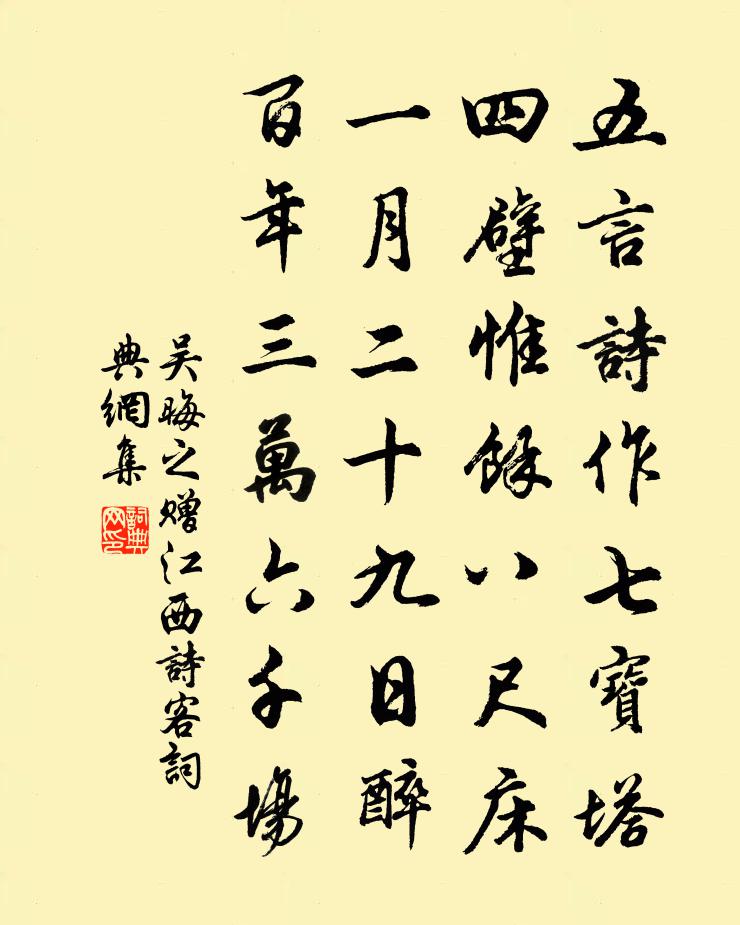 五言詩作七寶塔
四壁惟餘八尺床
一月二十九日醉
百年三萬六千場
吳晦之贈江西詩客詞
典網集
詞典
网印